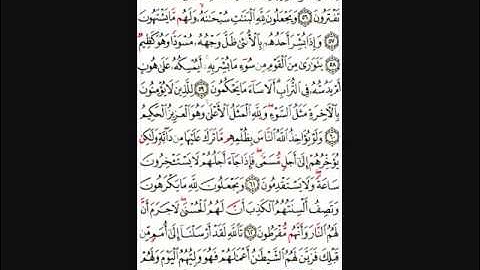 تَفْتَرُونَ ٥٦ وَيَجْعَلُونَ لِلَّهِ الْبَنَٰتِ سُبْحَٰنَهُۥ وَلَهُم مَّا يَشْتَهُونَ
٥٧ وَإِذَا بُشِّرَ أَحَدُهُم بِالْأُنثَىٰ ظَلَّ وَجْهُهُۥ مُسْوَدًّا وَهُوَ كَظِيمٌ
٥٨ يَتَوَٰرَىٰ مِنَ الْقَوْمِ مِن سُوٓءِ مَا بُشِّرَ بِهِۦٓ أَيُمْسِكُهُۥ عَلَىٰ هُونٍ
أَمْ يَدُسُّهُۥ فِي التُّرَابِ أَلَا سَآءَ مَا يَحْكُمُونَ ٥٩ لِلَّذِينَ لَا يُؤْمِنُونَ
بِالْآخِرَةِ مَثَلُ السَّوْءِ وَلِلَّهِ الْمَثَلُ الْأَعْلَىٰ وَهُوَ الْعَزِيزُ الْحَكِيمُ
٦٠ وَلَوْ يُؤَاخِذُ اللَّهُ النَّاسَ بِظُلْمِهِم مَّا تَرَكَ عَلَيْهَا مِن دَآبَّةٍ وَلَٰكِن
يُؤَخِّرُهُمْ إِلَىٰٓ أَجَلٍ مُّسَمًّى فَإِذَا جَآءَ أَجَلُهُمْ لَا يَسْتَـْٔخِرُونَ
سَاعَةً وَلَا يَسْتَقْدِمُونَ ٦١ وَيَجْعَلُونَ لِلَّهِ مَا يَكْرَهُونَ
وَتَصِفُ أَلْسِنَتُهُمُ الْكَذِبَ أَنَّ لَهُمُ الْحُسْنَىٰ لَا جَرَمَ أَنَّ
لَهُمُ النَّارَ وَأَنَّهُم مُّفْرَطُونَ ٦٢ تَاللَّهِ لَقَدْ أَرْسَلْنَآ إِلَىٰٓ أُمَمٍ مِّن
قَبْلِكَ فَزَيَّنَ لَهُمُ الشَّيْطَٰنُ أَعْمَٰلَهُمْ فَهُوَ وَلِيُّهُمُ الْيَوْمَ وَلَهُمْ